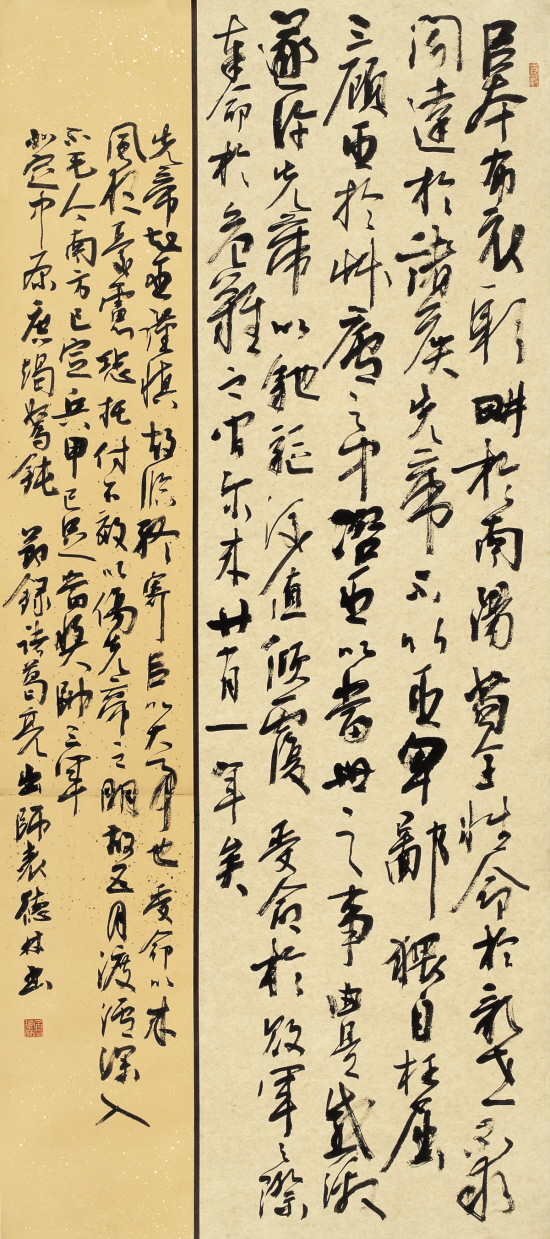 臣本布衣躬畊於南陽苟全性命於亂世不求
聞達於諸矦先帝不以臣卑鄙猥自枉屈
三顧臣於艸廬之中諮臣以當世之事由是感激
遂許先帝以馳驅後值傾覆受命於敗軍之際
奉命於危難之間尔来廿有一年矣
先帝知臣謹慎故臨終寄臣以大事也受命以来
夙夜憂慮恐托付不效以傷先帝之明故五月渡瀘深入
不毛今南方已定兵甲已足當獎帥三軍
北定中原庶竭駑鈍 節錄諸葛亮出師表德林書